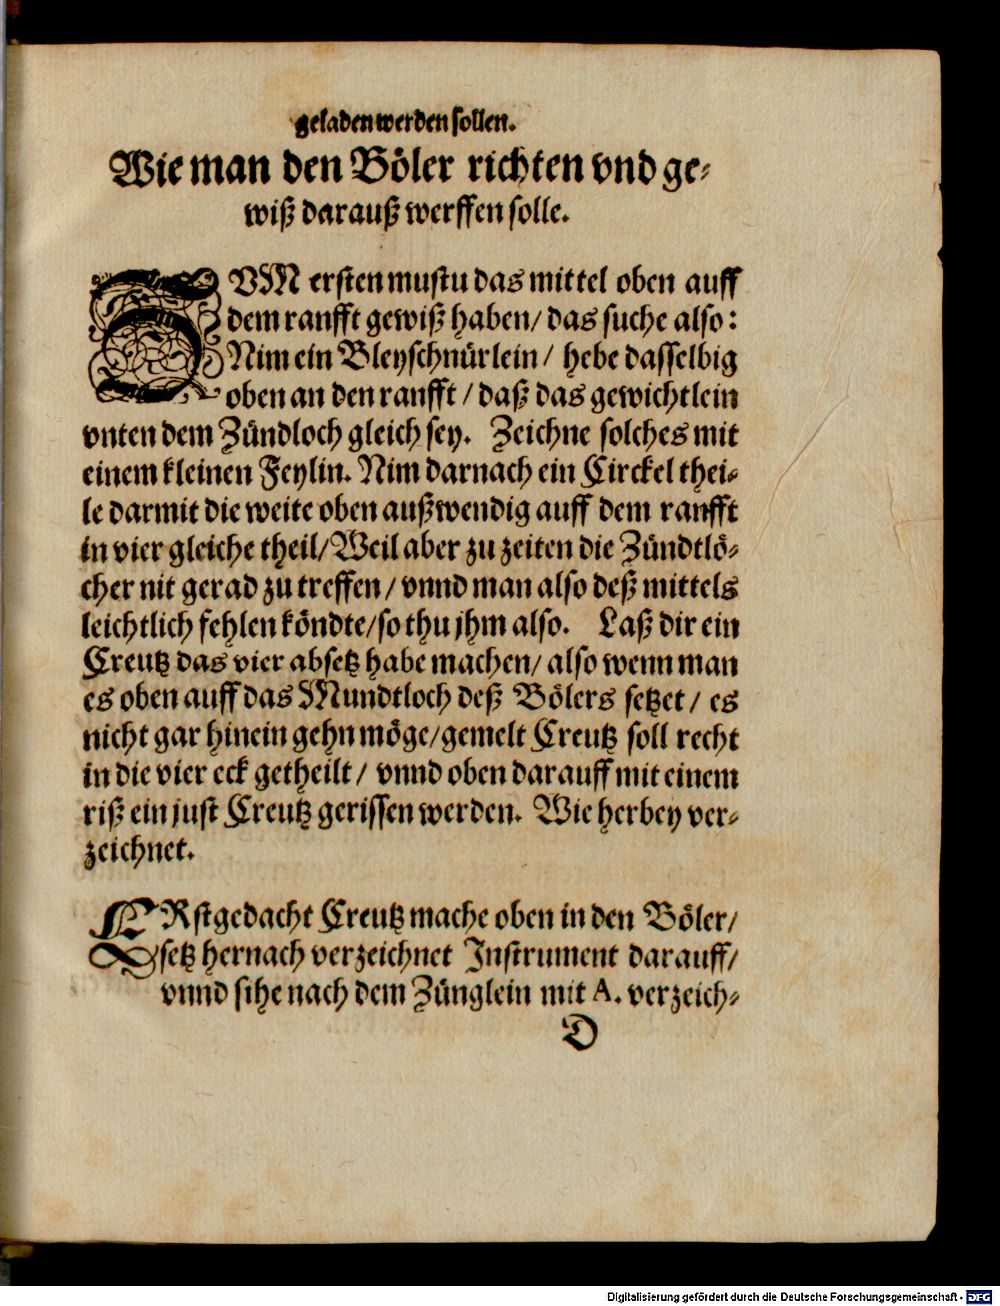 geladen werden sollen.
Wie man den Böler richten vnd ge-
wiß darauß werffen solle.
ZVM ersten mustu das mittel oben auff
dem ranfft gewiß haben/ das suche also:
Nim ein Bleyschnürlein/ hebe dasselbig
oben an den ranfft/ daß das gewichtlein
vnten dem Zündloch gleich sey. Zeichne solches mit
einem kleinen Feylin. Nim darnach ein Circkel thei-
le darmit die weite oben außwendig auff dem ranfft
in vier gleiche theil/ Weil aber zu zeiten die Zündtlö-
cher nit gerad zu treffen/ vnnd man also deß mittels
leichtlich fehlen köndte/ so thu jhm also. Laß dir ein
Creutz das vier absetz habe machen/ also wenn man
es oben auff das Mundtloch deß Bölers setzet/ es
nicht gar hinein gehn möge/ gemelt Creutz soll recht
in die vier eck getheilt/ vnnd oben darauff mit einem
riß ein just Creutz gerissen werden. Wie herbey ver-
zeichnet.
ERstgedacht Creutz mache oben in den Böler/
setz hernach verzeichnet Instrument darauff/
vnnd sihe nach dem Zünglein mit A. verzeich-
D
Digitalisierung gefördert durch die Deutsche Forschungsgemeinschaft - DFG